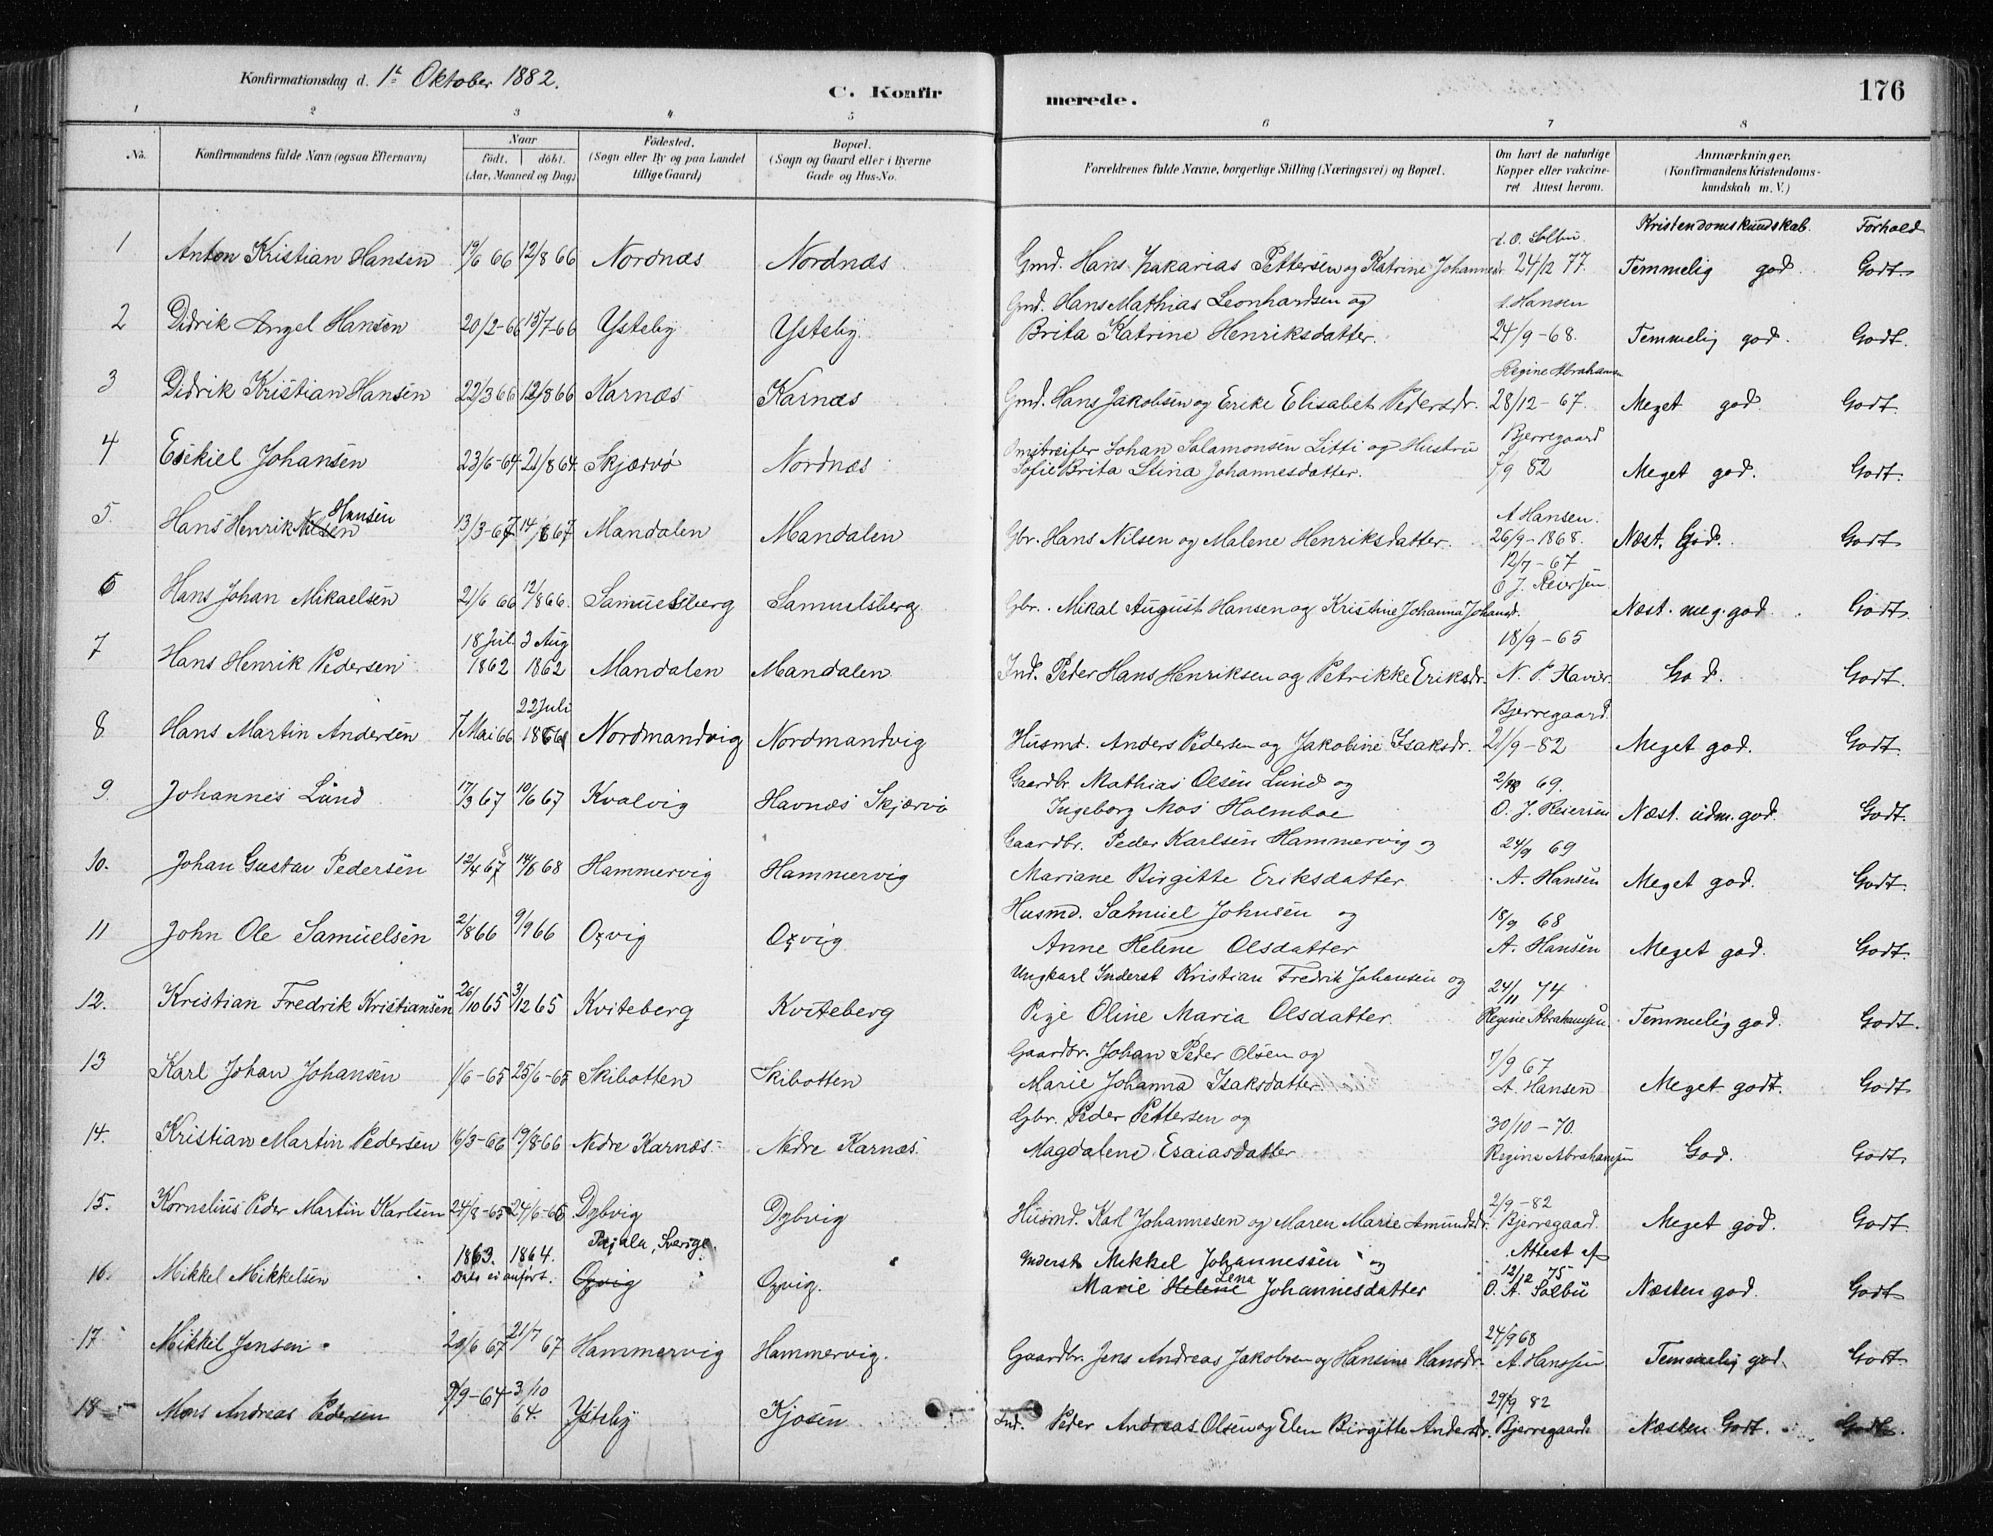 Konfirmationsdag d. 1ste Oktober 1882.
C. Konfirmerede.
176
1 2 3 4 5 6 7 8
No.
Konfirmandens fulde Navn (ogsaa Efternavn)
Naar
födt. döbt.
(Aar, Maaned og Dag)
Födested.
(Sogn eller By og paa Landet
tillige Gaard)
Bopæl.
(Sogn og Gaard eller i Byerne
Gade og Hus-No.
Forældrenes fulde Navne, borgerlige Stilling (Næringsvei) og Bopæl.
Om havt de naturlige
Kopper eller vakcineret
Attest herom.
Anmærkninger.
(Konfirmandens Kristendomskundskab
m. V.)
Kristendomskundskab. Forhold
1 Anton Kristian Hansen 19/6 66 12/8 66 Nordnæs Nordnæs Gmd. Hans Zakarias Pettersen og Katrine Johannesdr. A. O. Solbu. 24/12 77. Temmelig god. Godt
2 Didrik Angel Hansen 20/2-66 15/7-66 Ysteby Ysteby. Gmd. Hans Mathias Leonhardsen og
Brita Katrine Henriksdatter. A Hansen 24/9-68. Temmelig god. Godt.
3 Didrik Kristian Hansen 22/3 66 12/8 66 Karnæs Karnæs Gmd. Hans Jakobsen og Erike Elisabet Pedersdr. Regine Abrahamsen 28/12-67. Meget god. Godt.
4 Esekiel Johansen 23/6-64 21/8 64 Skjærvø Nordnæs Omstreifer Johan Salamonsen Litti og Hustru
Sofie Brita Stina Johannesdatter. Bjerregaard 7/9 82 Meget god. Godt.
5. Hans Henrik Nilsen Hansen 13/3-67 14/6 67 Mandalen Mandalen Gbr. Hans Nilsen og Malene Henriksdatter. A Hansen. 26/9-1868. Næst. God. Godt
6 Hans Johan Mikaelsen 21/6 66 12/8 66. Samuelsberg Samuelsberg Gbr. Mikal August Hansen og Kristine Johanna Johansd. 12/7-67 O. J. Reiersen Næst. meg. god Godt.
7 Hans Henrik Pedersen 18 Jul. 1862 3 Aug 1862 Mandalen Mandalen Ind. Peder Hans Henriksen og Petrikke Eriksdr. 18/9-65 N. P. Havier. God. Godt.
8. Hans Martin Andersen 7 Mai 66 22 Juli 1866 Nordmandvig Nordmandvig Husmd. Anders Pedersen og Jakobine Isaksdr. Bjerregaard. 21/9-82 Meget god. Godt.
9. Johannes Lund 17/3 67 10/6 67 Kvalvig Havnæs Skjærvø Gaardbr. Mathias Olsen Lund og
Ingeborg Mos Holmboe 2/8 69. O. J. Reiersen Næst. udm. god. Godt.
10. Johan Gustav Pedersen 12/4 67 8 14/6 68 Hammervig Hammervig Gaardbr. Peder Karlsen Hammervig og
Mariane Birgitte Eriksdatter. 24/9 69 A. Hansen Meget god. Godt.
11 John Ole Samuelsen 2/8 66 9/9 66 Oxvig Oxvig. Husmd. Samuel Johnsen og
Anne Helene Olsdatter 18/9 68 A. Hansen Meget god. Godt
12. Kristian Fredrik Kristiansen 26/10 65 3/12 65 Kviteberg Kviteberg Ungkarl Inderst Kristian Fredrik Johansen og
Pige Oline Maria Olsdatter. 24/11 74 Regine Abrahamsen. Temmelig god. Godt.
13 Karl Johan Johansen 1/6-65 25/6-65 Skibotten Skibotten Gaardbr. Johan Peder Olsen og
Marie Johanna Isaksdatter. 7/9 67 A. Hansen Meget godt. Godt
14. Kristian Martin Pedersen 16/3-66 19/8-66 Nedre Karnæs Nedre Karnæs. Gbr. Peder Pettersen og
Magdalene Esaiasdatter 30/10-70. Regine Abrahamsen God. Godt.
15. Kornelius Peder Martin Karlsen 24/8-65 24/6-66 Dybvig Dybvig Husmd. Karl Johannesen og Maren Marie Amundsdr. 2/9-82 Bjerregaard. Meget god. Godt
16. Mikkel Mikkelsen 1863. 1864. Dato ei anført. Pajala, Sverige. Oxvig Oxvig. Inderst Mikkel Johannessen og
Marie Helene Lena Johannesdatter Attest af 12/12 75 O. A. Solbu Næsten god. Godt
17 Mikkel Jensen 20/6 67 21/7 67 Hammervig Hammervig. Gaardbr. Jens Andreas Jakobsen og Hansine Hansdr. 24/9 68 A. Hanssen Temmelig god. Godt
18 Mons Andreas Pedersen 9/9-64 3/10 64. Ysteby Kjosen Ind. Peder Andreas Olsen og Elen Birgitte Andersdr. 29/9 82 Bjerregaard Næsten Godt. Godt.